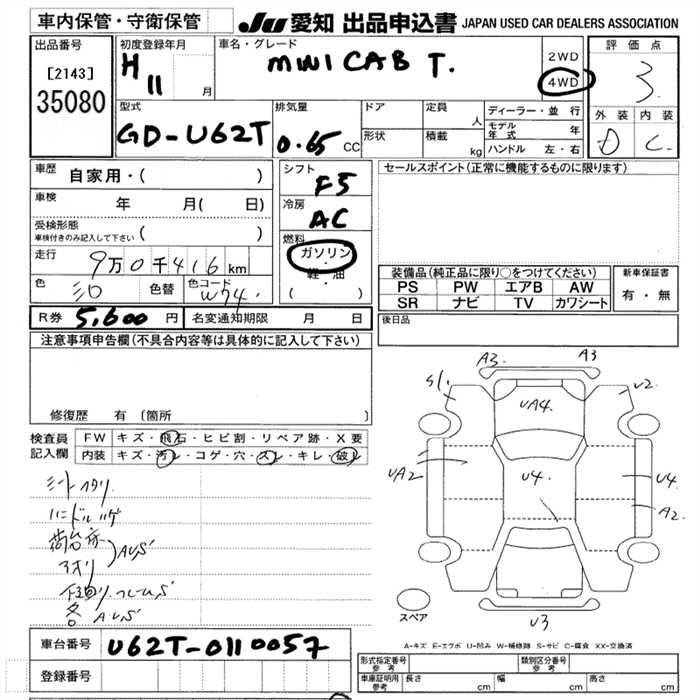 車内保管・守衛保管
JU 愛知 出品申込書 JAPAN USED CAR DEALERS ASSOCIATION
出品番号
[2143]
35080
初度登録年月
H 11 月
車名・グレード
MINI CAB T.
2WD
4WD
評価点
3
外装 内装
D C
型式
GD-U62T
排気量
0.65 CC
ドア
形状
定員 人
積載 kg
ディーラー・並行
モデル年式 年
ハンドル 左・右
車歴 自家用・( )
車検 年 月( 日)
受検形態
車検付きのみ記入して下さい ( )
走行 9万0千416km
色 シロ 色替 色コード W74.
シフト
F5
冷房
AC
燃料
ガソリン
・
軽・油
( )
セールスポイント(正常に機能するものに限ります)
装備品(純正品に限り○をつけてください)
PS PW エアB AW
SR ナビ TV カワシート
新車保証書
有・無
R券 5,600 円 名変通知期限 月 日
後日品
注意事項申告欄(不具合内容等は具体的に記入して下さい)
修復歴 有 [箇所 ]
検査員記入欄
FW キズ・飛石・ヒビ割・リペア跡・X要
内装 キズ・汚レ・コゲ・穴・スレ・キレ・破レ
シートヘタリ
ハンドルハゲ
荷台床
アオリ AUS
下回り.フレームS
各 AUS
A3. A3
S1. U2
UA4.
UA2 U4 U4
A2
U3
スペア
A-キズ E-エクボ U-凹み W-補修跡 S-サビ C-腐食 XX-交換済
車台番号 U62T-0110057
登録番号
形式指定番号 参考
類別区分番号 参考
車庫証明用 参考 長さ cm 幅 cm 高さ cm